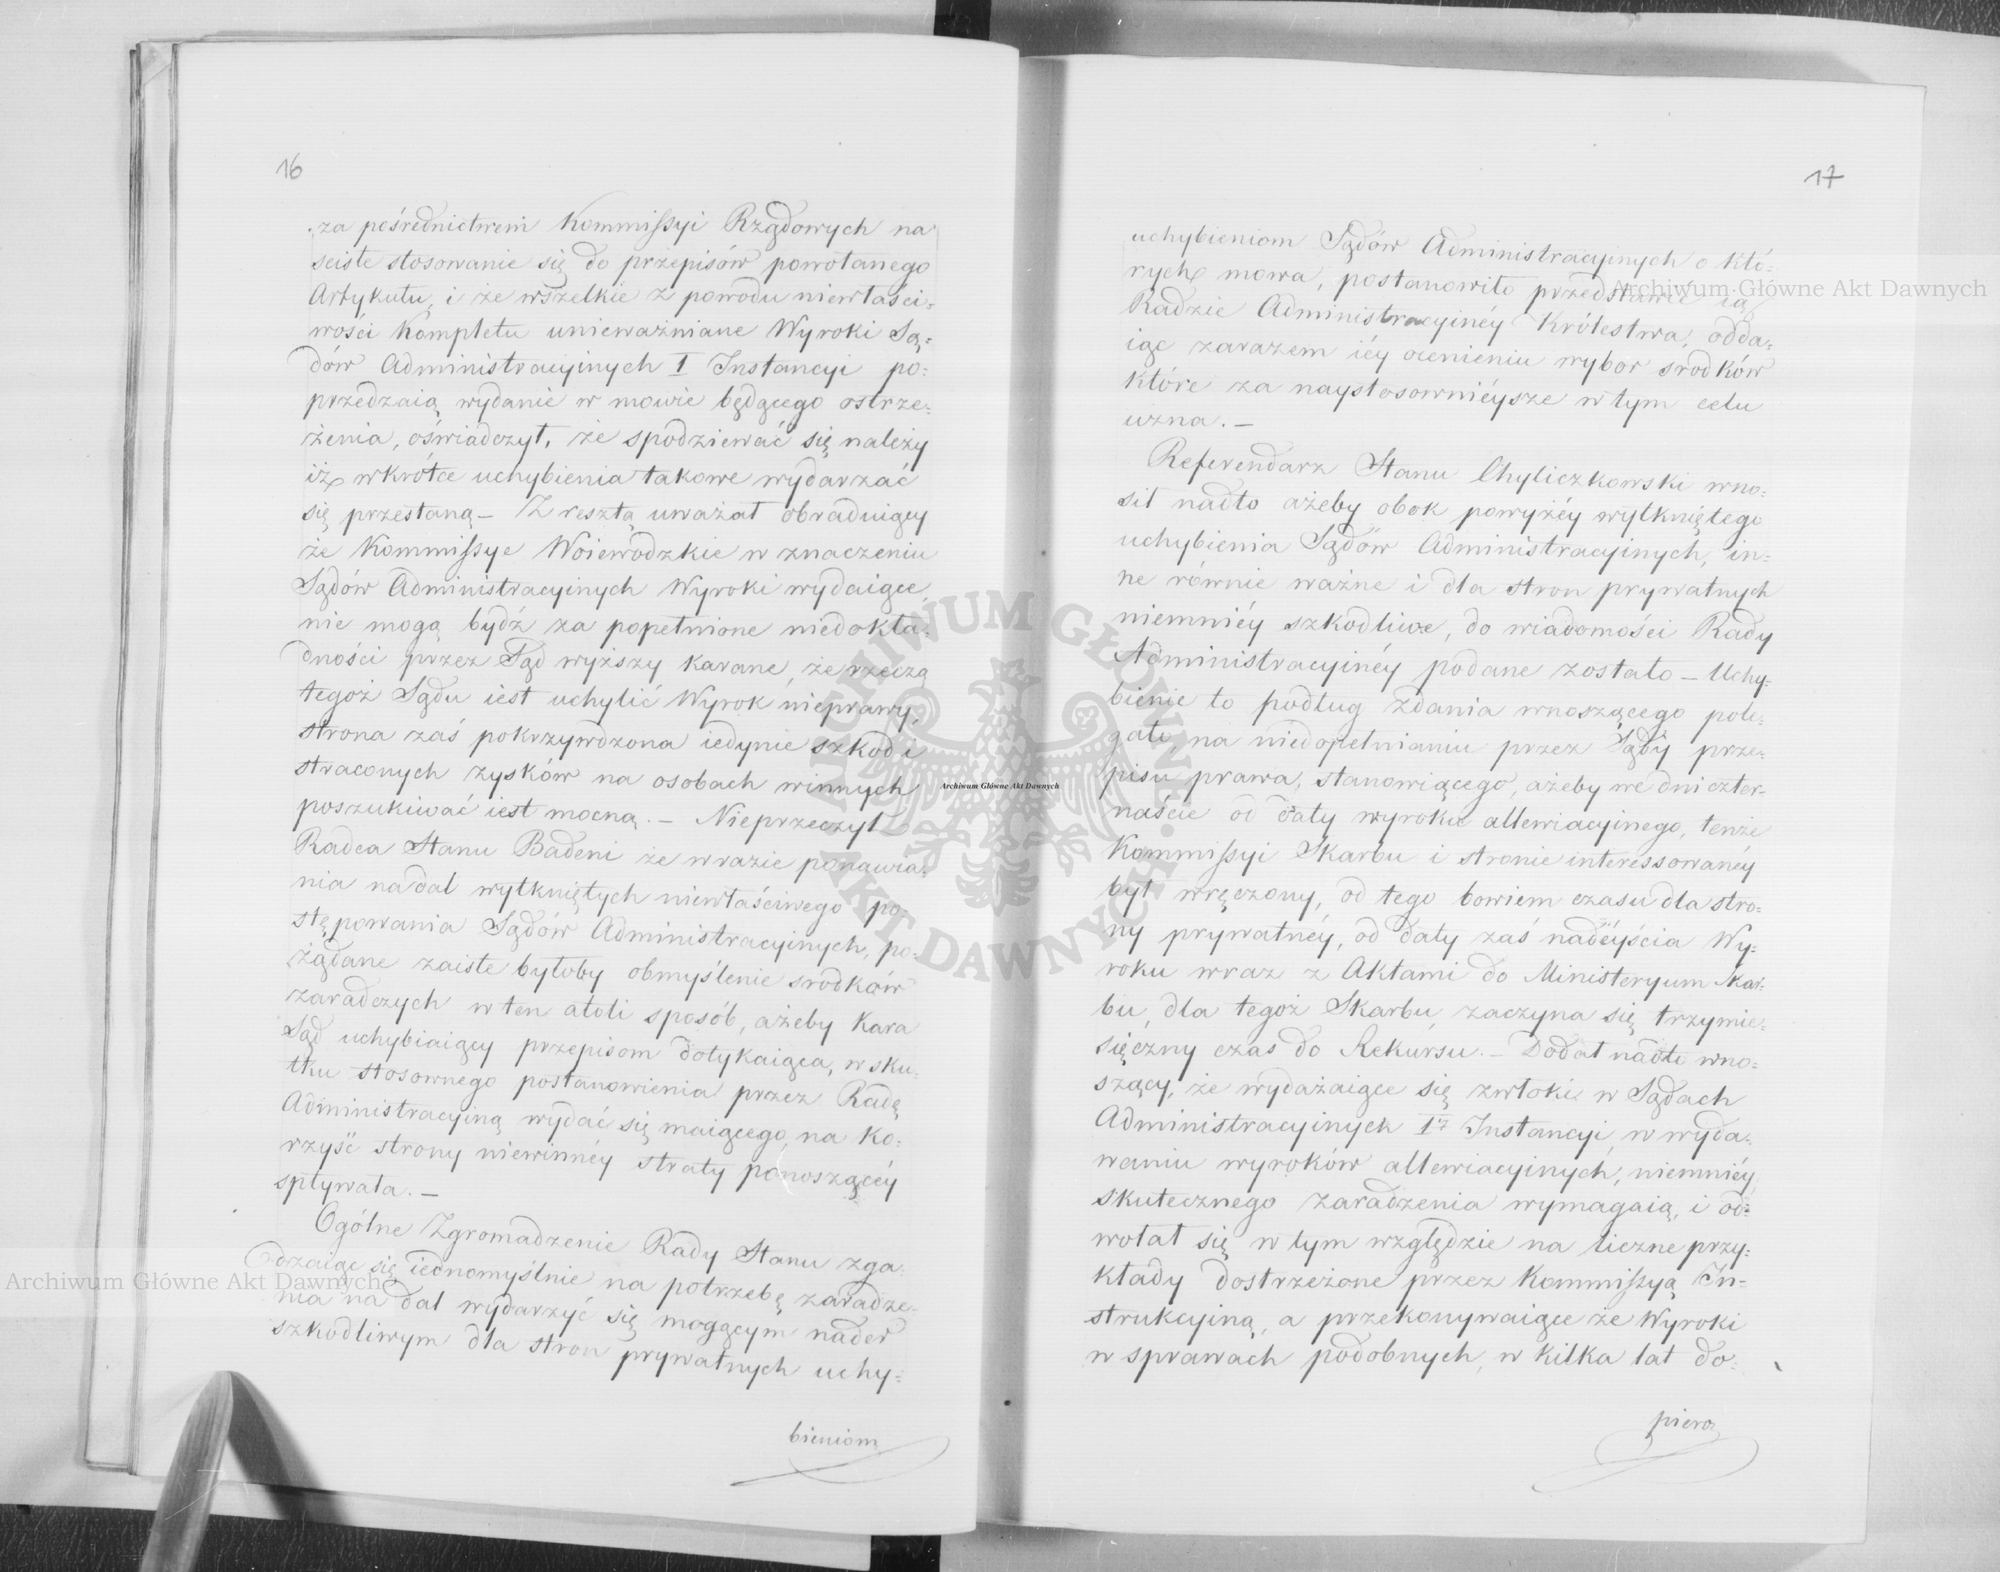 16
za pośrednictwem Kommissyi Rządowych na
scisłe stosowanie się do przepisów powołanego
Artykułu, i że wszelkie z powodu niewłaści=
wości Kompletu unieważniane Wyroki Są=
dów Administracyinych I Instancyi po=
przedzaią wydanie w mowie będącego ostrze=
żenia, oświadczył, że spodziewać się należy
iż wkrótce uchybienia takowe wydarzać
się przestaną – Z resztą uważał obraduiący
że Kommissye Woiewodzkie w znaczeniu
Sądów Administracyinych Wyroki wydaiące,
nie mogą bydź za popełnione niedokła=
dności przez Sąd wyższy karane, że rzeczą
tegoż Sądu iest uchylić Wyrok nieprawy,
strona zaś pokrzywdzona iedynie szkod i
straconych zysków na osobach winnych
poszukiwać iest mocną. – Nieprzeczył
Radca Stanu Badeni że w razie ponawia=
nia nadal wytkniętych niewłaściwego po=
stępowania Sądów Administracyinych, po=
żądane zaiste byłoby obmyślenie srodków
zaradczych w ten atoli sposób, ażeby kara
Sąd uchybiaiący przepisom dotykaiąca, w sku=
tku stosownego postanowienia przez Radę
Administracyiną wydać się maiącego, na ko=
rzyść strony niewinnéy straty ponoszącéy
spływała. –
Ogólne Zgromadzenie Rady Stanu zga=
dzaiąc się iednomyślnie na potrzebę zaradze=
nia na dal wydarzyć się mogącym nader
szkodliwym dla stron prywatnych uchy=
bieniom
17
uchybieniom Sądów Administracyinych o któ=
rych mowa, postanowiło przedstawić ią
Radzie Administracyinéy Królestwa, odda=
iąc zarazem iéy ocenieniu wybor srodków
które za naystosownieysze w tym celu
uzna. –
Referendarz Stanu Chyliczkowski wno=
sił nadto ażeby obok powyżéy wytkniętego
uchybienia Sądów Administracyinych, in=
ne równie ważne i dla stron prywatnych
niemniéy szkodliwe, do wiadomości Rady
Administracyinéy podane zostało – Uchy=
bienie to podług zdania wnoszącego pole=
gało, na niedopełnianiu przez Sądy prze=
pisu prawa, stanowiącego, ażeby we dni czter=
naście od daty wyroku allewiacyinego, tenże
Kommissyi Skarbu i stronie interessowanéy
był wręczony, od tego bowiem czasu dla stro=
ny prywatnéy, od daty zaś nadéyścia Wy=
roku wraz z Aktami do Ministeryum Skar=
bu, dla tegoż Skarbu, zaczyna się trzymie=
sięczny czas do Rekursu. – Dodał nadto wno=
szący, że wydażaiące się zwłoki w Sądach
Administracyinych Iéy Instancyi, w wyda=
waniu wyroków allewiacyinych, niemniéy
skutecznego zaradzenia wymagaią, i od=
wołał się w tym względzie na liczne przy=
kłady dostrzeżone przez Kommissyą In=
strukcyiną, a przekonywaiące że Wyroki
w sprawach podobnych, w kilka lat do=
piero
Archiwum Główne Akt Dawnych
Archiwum Główne Akt Dawnych
Archiwum Główne Akt Dawnych
ARCHIWUM GŁÓWNE AKT DAWNYCH